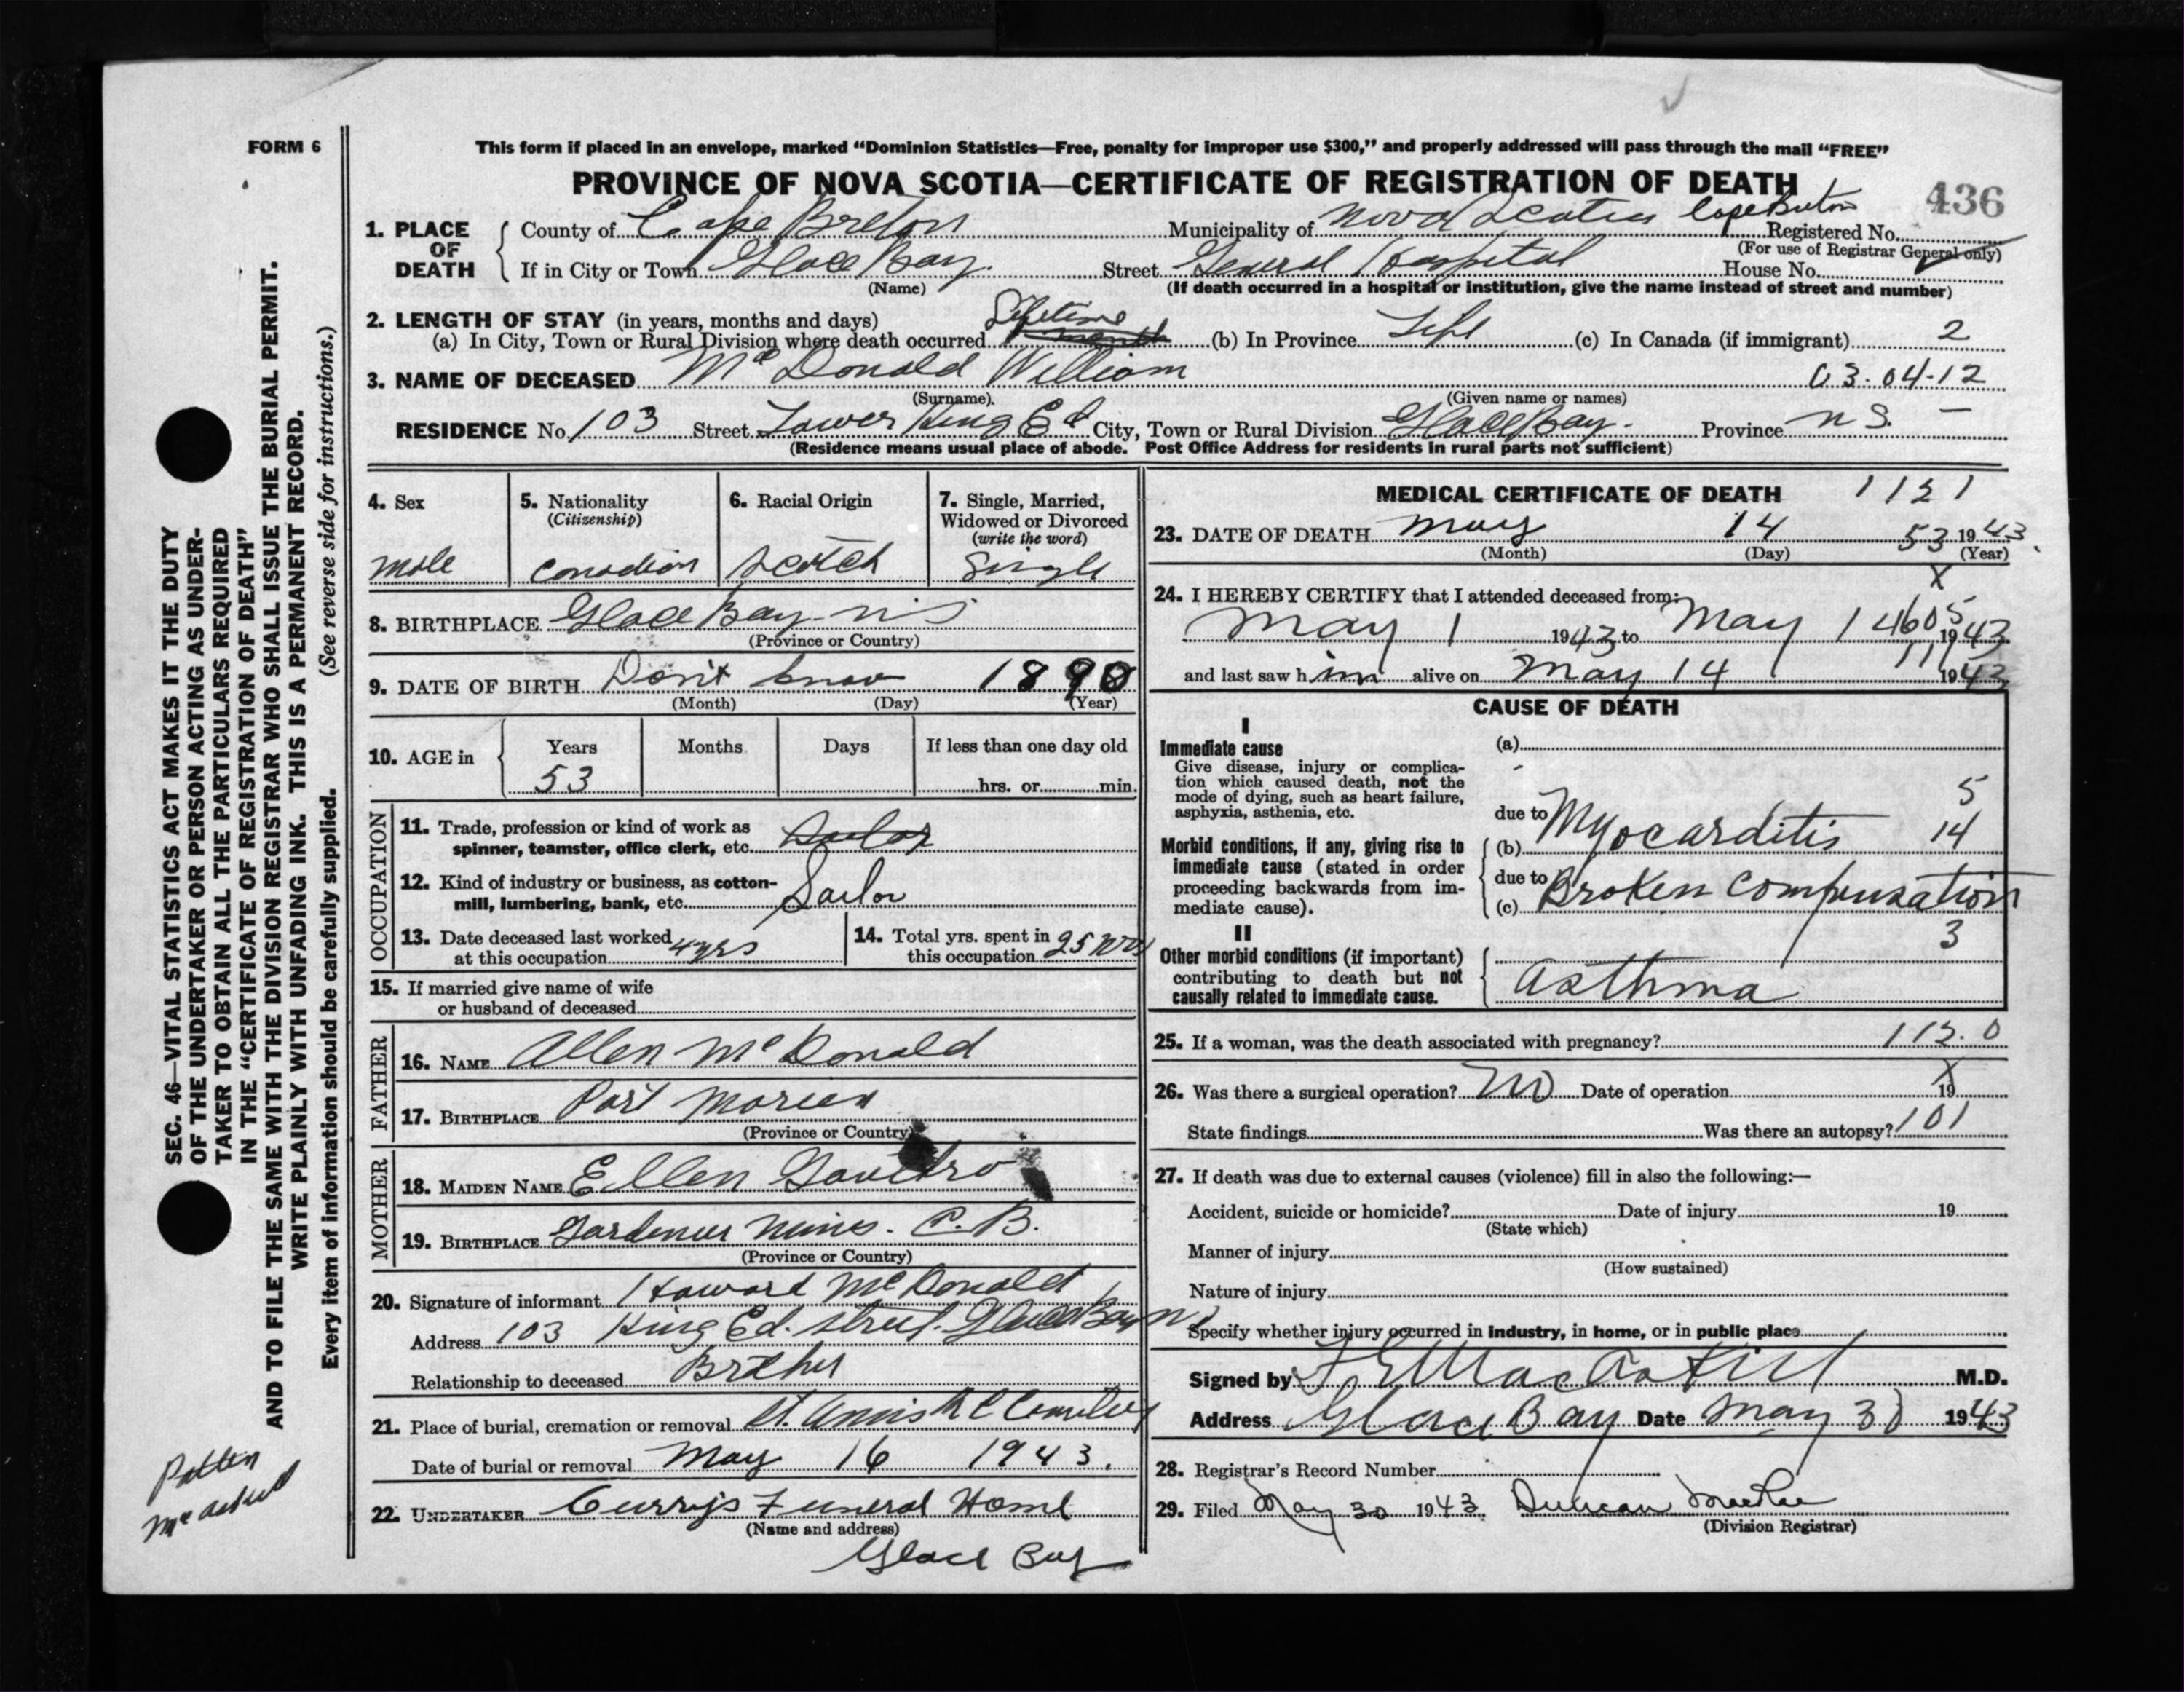 FORM 6
This form if placed in an envelope, marked “Dominion Statistics—Free, penalty for improper use $300,” and properly addressed will pass through the mail “FREE”
PROVINCE OF NOVA SCOTIA—CERTIFICATE OF REGISTRATION OF DEATH
436
1. PLACE OF DEATH
County of Cape Breton Municipality of Nova Scotia Cape Breton Registered No.
(For use of Registrar General only)
If in City or Town Glace Bay. Street General Hospital House No.
(Name) (If death occurred in a hospital or institution, give the name instead of street and number)
2. LENGTH OF STAY (in years, months and days)
(a) In City, Town or Rural Division where death occurred Lifetime (b) In Province Life (c) In Canada (if immigrant) 2
3. NAME OF DECEASED McDonald William 03.04-12
(Surname). (Given name or names)
RESIDENCE No. 103 Street Lower King Ed City, Town or Rural Division Glace Bay. Province N S. —
(Residence means usual place of abode. Post Office Address for residents in rural parts not sufficient)
4. Sex
male
5. Nationality
(Citizenship)
Canadian
6. Racial Origin
Scotch
7. Single, Married,
Widowed or Divorced
(write the word)
Single
8. BIRTHPLACE Glace Bay N S
(Province or Country)
9. DATE OF BIRTH Don't know 1890
(Month) (Day) (Year)
10. AGE in Years Months Days If less than one day old
53 hrs. or min.
OCCUPATION
11. Trade, profession or kind of work as
spinner, teamster, office clerk, etc. Sailor
12. Kind of industry or business, as cotton-
mill, lumbering, bank, etc. Sailor
13. Date deceased last worked
at this occupation 4 yrs
14. Total yrs. spent in
this occupation 25 yrs
15. If married give name of wife
or husband of deceased
FATHER
16. NAME Allen McDonald
17. BIRTHPLACE Port Morien
(Province or Country)
MOTHER
18. MAIDEN NAME Ellen
19. BIRTHPLACE Gardener Mines. C. B.
(Province or Country)
20. Signature of informant Howard McDonald
Address 103 King Ed. street. Glace Bay NS
Relationship to deceased Brother
21. Place of burial, cremation or removal St. Annis R C Cemetery
Date of burial or removal May 16 1943.
22. UNDERTAKER Curry's Funeral Home
(Name and address)
Glace Bay
MEDICAL CERTIFICATE OF DEATH 1121
23. DATE OF DEATH May 14 53 1943.
(Month) (Day) (Year)
X
24. I HEREBY CERTIFY that I attended deceased from:
May 1 1943 to May 14 605 1943
and last saw him alive on May 14 111 1943
CAUSE OF DEATH
I
Immediate cause
Give disease, injury or complica-
tion which caused death, not the
mode of dying, such as heart failure,
asphyxia, asthenia, etc.
(a)
5
due to Myocarditis
14
Morbid conditions, if any, giving rise to
immediate cause (stated in order
proceeding backwards from im-
mediate cause).
(b)
due to Broken Compensation
(c)
3
II
Other morbid conditions (if important)
contributing to death but not
causally related to immediate cause.
Asthma
25. If a woman, was the death associated with pregnancy? 112.0
26. Was there a surgical operation? No Date of operation X 19
State findings Was there an autopsy? 101
27. If death was due to external causes (violence) fill in also the following:—
Accident, suicide or homicide? Date of injury 19
(State which)
Manner of injury
(How sustained)
Nature of injury
Specify whether injury occurred in industry, in home, or in public place
Signed by M.D.
Address Glace Bay Date May 30 1943
28. Registrar's Record Number
29. Filed May 30 1943. Duncan MacRae
(Division Registrar)
SEC. 46—VITAL STATISTICS ACT MAKES IT THE DUTY
OF THE UNDERTAKER OR PERSON ACTING AS UNDER-
TAKER TO OBTAIN ALL THE PARTICULARS REQUIRED
IN THE “CERTIFICATE OF REGISTRATION OF DEATH”
AND TO FILE THE SAME WITH THE DIVISION REGISTRAR WHO SHALL ISSUE THE BURIAL PERMIT.
WRITE PLAINLY WITH UNFADING INK. THIS IS A PERMANENT RECORD.
Every item of information should be carefully supplied. (See reverse side for instructions.)